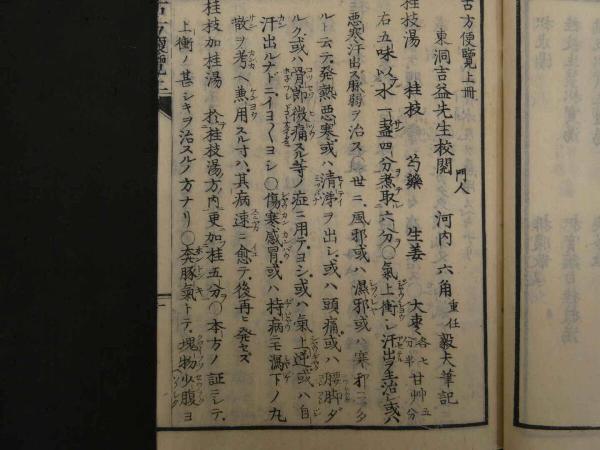 古方便覽上冊
東洞吉益先生校閱 門人 河内 六角重任毅夫筆記
桂枝湯 桂枝 芍藥 生姜 大棗各七分半 甘艸五分
右五味以水一盞四分煮取六分○氣上衝シ汗出ヲ主治シ或ハ
悪寒汗出ス脉弱ヲ治ス○世ニ風邪或ハ濕邪或ハ寒邪
ルト云テ發熱悪寒或ハ清涕ヲ出シ或ハ頭痛或ハ腰脚ダ
ルク或ハ骨節微痛スル等ノ症ニ用テヨシ或ハ氣上逆或ハ自
汗出ルナドニイヨ〳〵ヨシ○傷寒感冒或ハ持病ニモ瀉下ノ丸
散ヲ考ヘ兼用スル寸ハ其病速ニ愈テ後再ヒ發セズ
桂枝加桂湯 於桂枝湯方内更加桂五分○本方ノ証ニシテ
上衝ノ甚シキヲ治スルノ方ナリ○奔豚氣トテ塊物少腹ヨ
古方便覽上